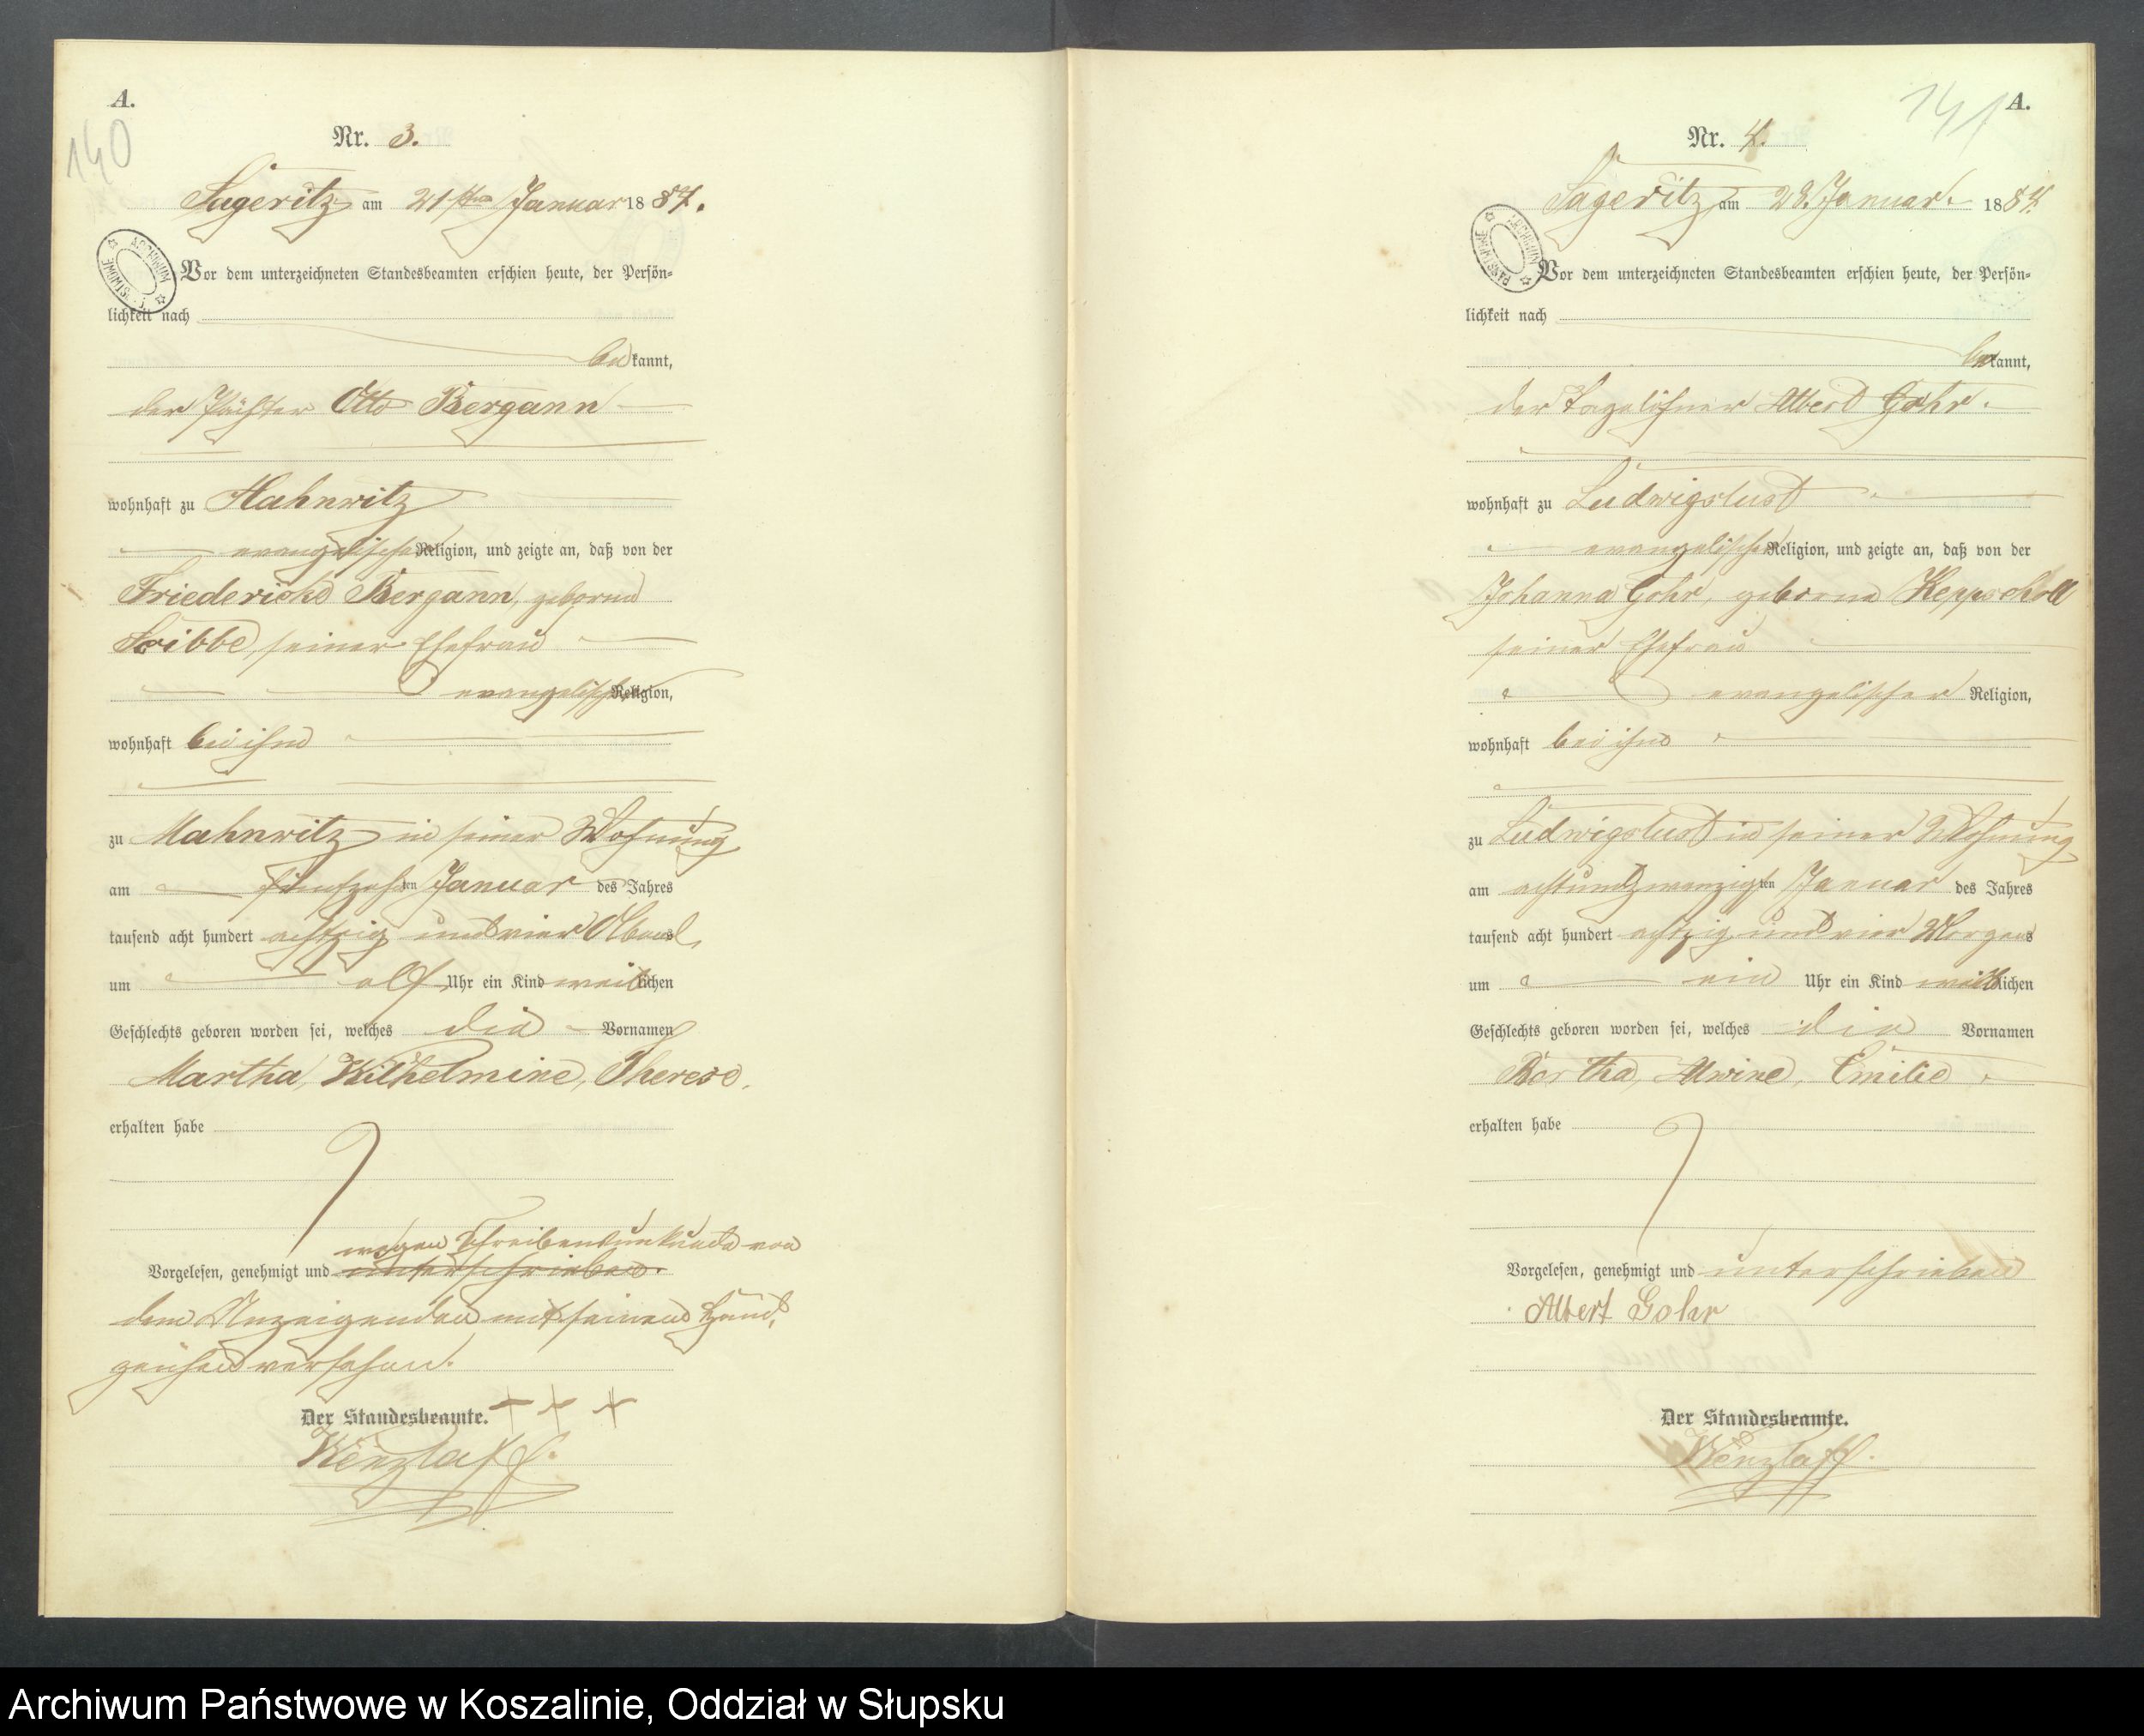 A.
140
Nr. 3.
Sageritz am 21ten Januar 1884.
Vor dem unterzeichneten Standesbeamten erschien heute, der Persön-
lichkeit nach
bekannt,
der Pächter Otto Bergann
wohnhaft zu Hahnwitz
evangelischer Religion, und zeigte an, daß von der
Friedericke Bergann, geborne
Tribbe, seiner Ehefrau
evangelischer Religion,
wohnhaft bei ihm
zu Mahnwitz in seiner Wohnung
am fünfzehnten Januar des Jahres
tausend acht hundert achtzig und vier Abends
um elf Uhr ein Kind weiblichen
Geschlechts geboren worden sei, welches die Vornamen
Martha, Wilhelmine, Therese,
erhalten habe
wegen Schreibensunkunde von
Vorgelesen, genehmigt und unterschrieben.
dem Anzeigenden mit seinem Hand,
zeichen versehen.
Der Standesbeamte. + + +
Wenzlaff.
A.
141
Nr. 4.
Sageritz am 28. Januar. 1884.
ARCHIWUM PAŃSTWOWE
Vor dem unterzeichneten Standesbeamten erschien heute, der Persön-
lichkeit nach
bekannt,
der Tagelöhner Albert Gohr.
wohnhaft zu Ludwigslust
evangelischer Religion, und zeigte an, daß von der
Johanna Gohr, geborne Keppschull
seiner Ehefrau
evangelischer Religion,
wohnhaft bei ihm
zu Ludwigslust in seiner Wohnung
am achtundzwanzigten Januar des Jahres
tausend acht hundert achtzig und vier Morgens
um ein Uhr ein Kind weiblichen
Geschlechts geboren worden sei, welches die Vornamen
Bertha, Alwine, Emilie
erhalten habe
Vorgelesen, genehmigt und unterschrieben
Albert Gohr
Der Standesbeamte.
Wenzlaff.
Archiwum Państwowe w Koszalinie, Oddział w Słupsku